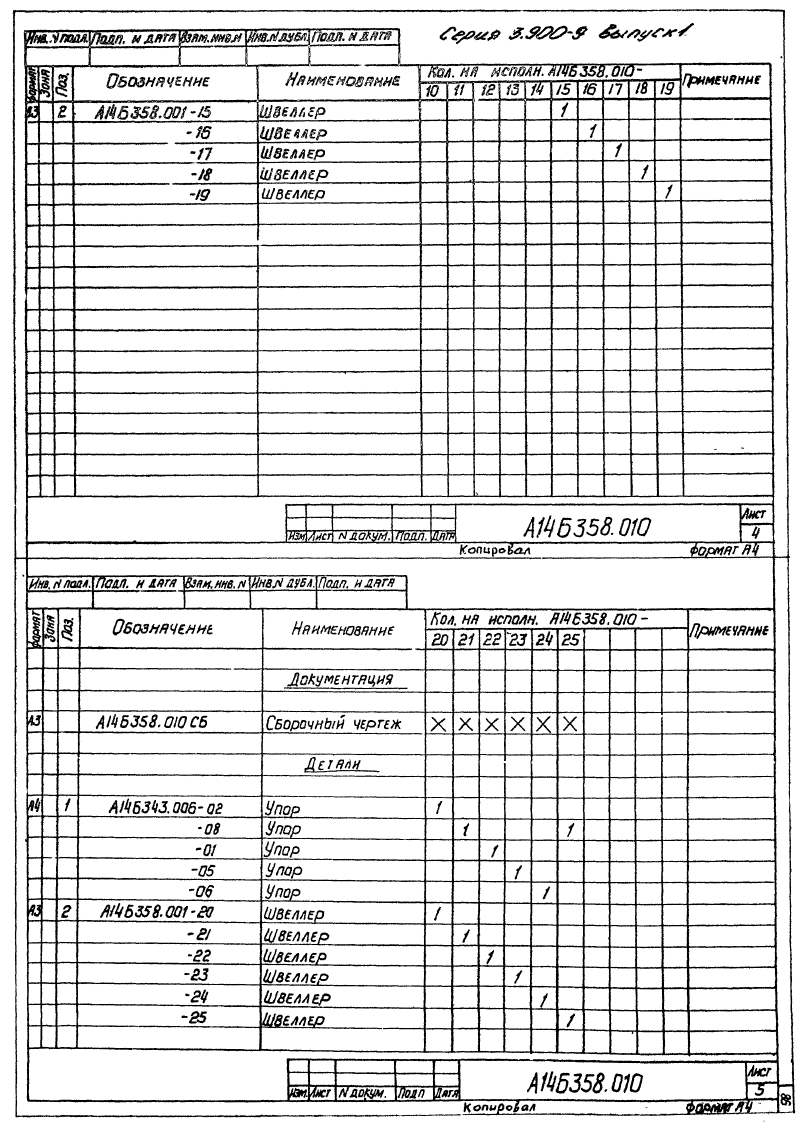 Серия 3.900-9 Выпуск 1
Инв. № подл. Подп. и дата Взам. инв. № Инв. № дубл. Подп. и дата
Формат Зона Поз. Обозначение Наименование Кол. на исполн. А14Б358.010- Примечание
10 11 12 13 14 15 16 17 18 19
А3 2 А14Б358.001-15 Швеллер 1
-16 Швеллер 1
-17 Швеллер 1
-18 Швеллер 1
-19 Швеллер 1
Изм. Лист № докум. Подп. Дата А14Б358.010 Лист 4
Копировал Формат А4
Инв. № подл. Подп. и дата Взам. инв. № Инв. № дубл. Подп. и дата
Формат Зона Поз. Обозначение Наименование Кол. на исполн. А14Б358.010- Примечание
20 21 22 23 24 25
Документация
А3 А14Б358.010 СБ Сборочный чертеж X X X X X X
Детали
А4 1 А14Б343.006-02 Упор 1
-08 Упор 1 1
-01 Упор 1
-05 Упор 1
-06 Упор 1
А3 2 А14Б358.001-20 Швеллер 1
-21 Швеллер 1
-22 Швеллер 1
-23 Швеллер 1
-24 Швеллер 1
-25 Швеллер 1
Изм. Лист № докум. Подп Дата А14Б358.010 Лист 5
Копировал Формат А4
98